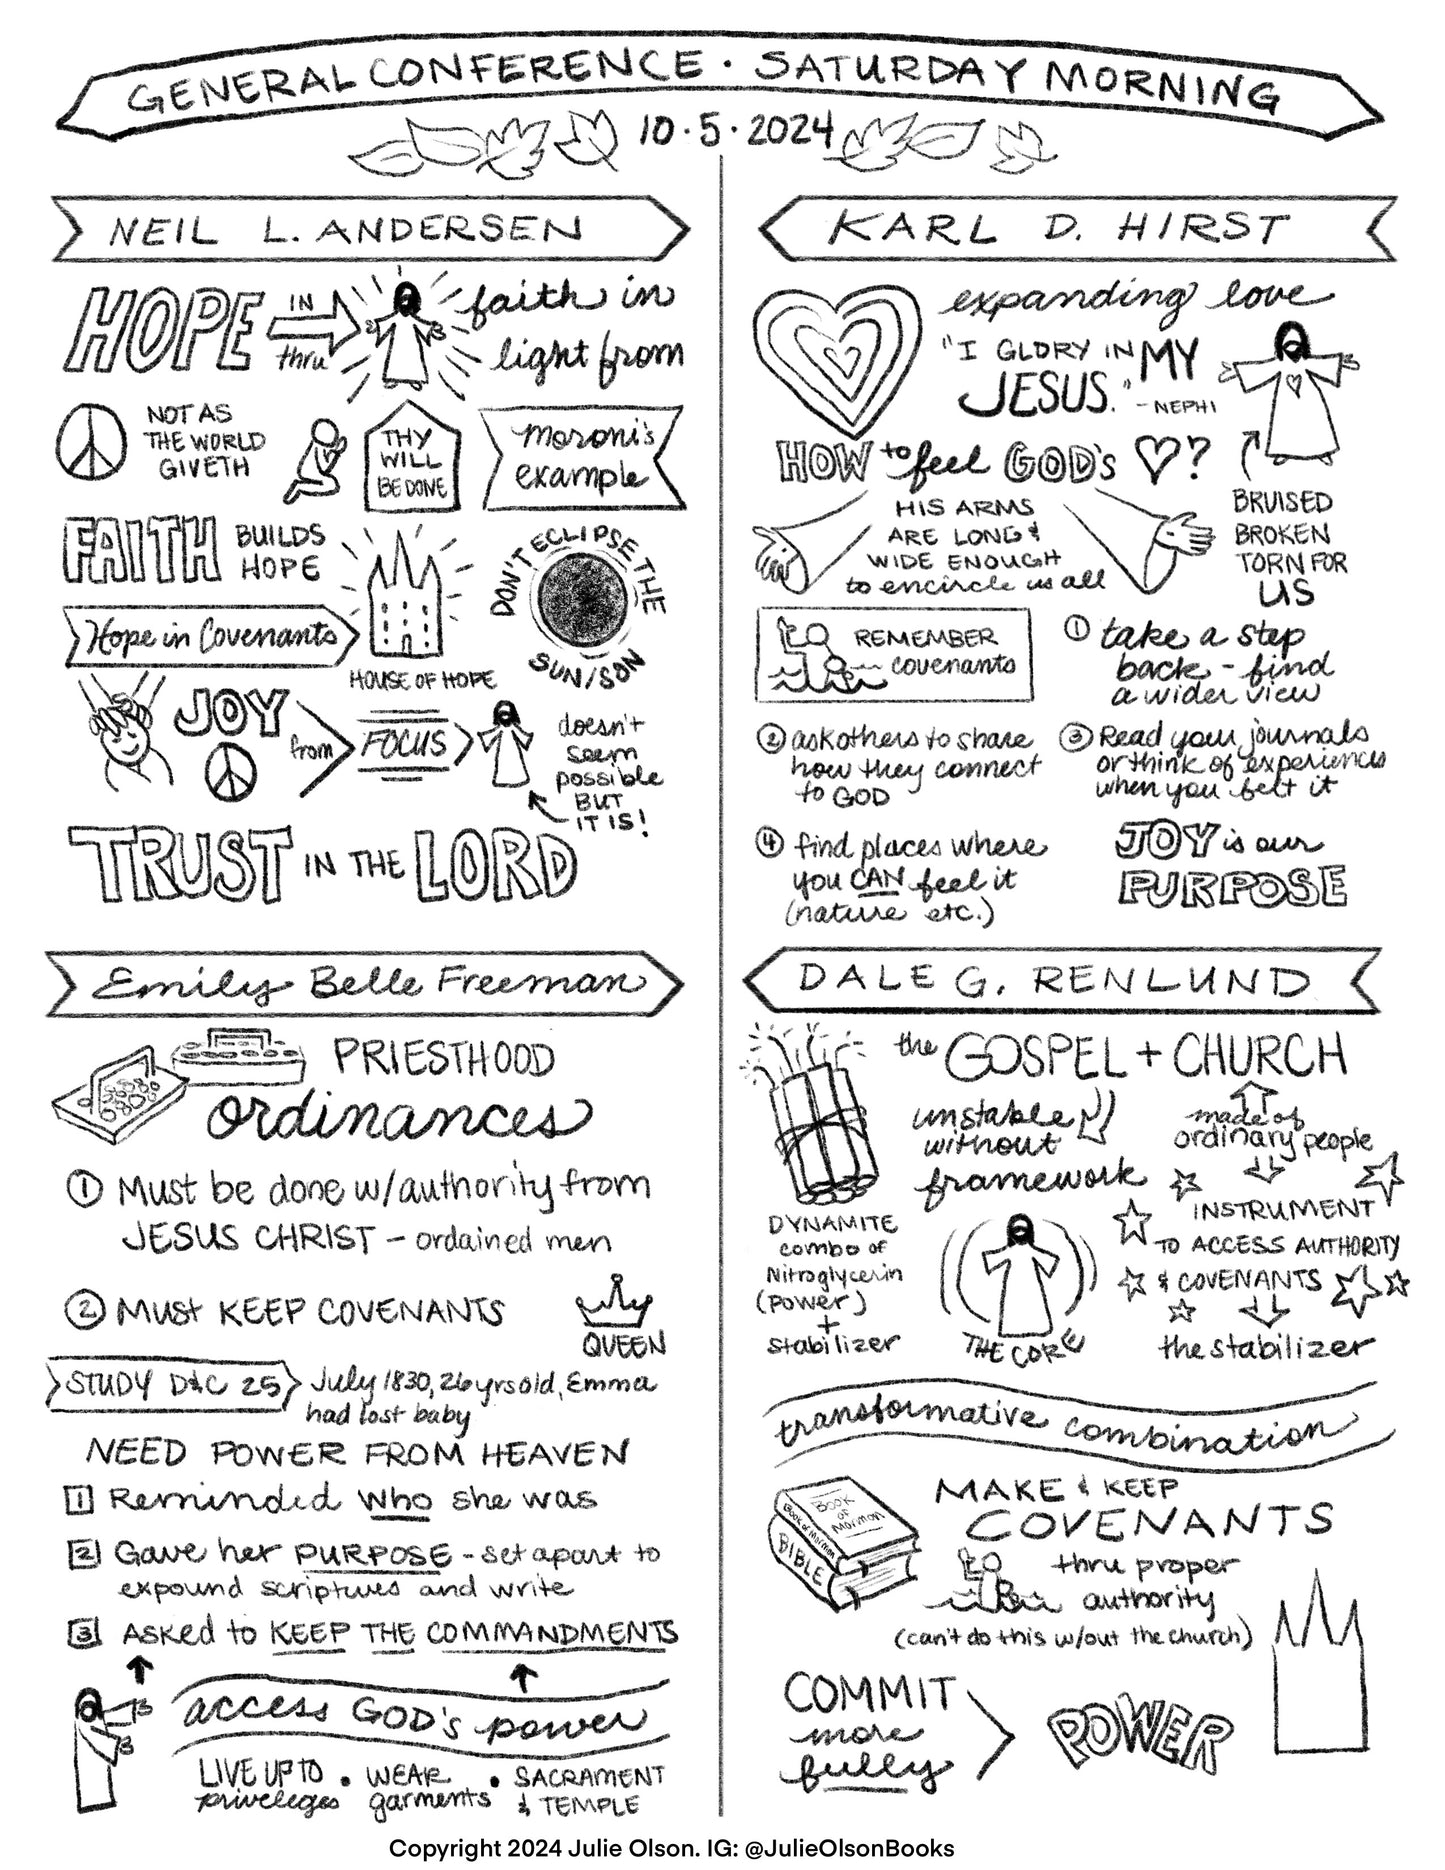 GENERAL CONFERENCE · SATURDAY MORNING
10·5·2024
NEIL L. ANDERSEN
HOPE IN thru faith in
light from
NOT AS
THE WORLD
GIVETH
THY
WILL
BE DONE
moroni's
example
FAITH BUILDS
HOPE
DON'T ECLIPSE THE
SUN/SON
Hope in Covenants
HOUSE OF HOPE
JOY
from
FOCUS
doesn't
seem
possible
BUT
IT IS!
TRUST IN THE LORD
KARL D. HIRST
expanding love
"I GLORY IN MY
JESUS." - NEPHI
HOW to feel GOD'S ?
HIS ARMS
ARE LONG &
WIDE ENOUGH
to encircle us all
BRUISED
BROKEN
TORN FOR
US
REMEMBER
covenants
① take a step
back - find
a wider view
② ask others to share
how they connect
to GOD
③ Read your journals
or think of experiences
when you felt it
④ find places where
you CAN feel it
(nature etc.)
JOY is our
PURPOSE
Emily Belle Freeman
PRIESTHOOD
ordinances
① Must be done w/authority from
JESUS CHRIST - ordained men
② Must KEEP COVENANTS
QUEEN
STUDY D&C 25
July 1830, 26 yrs old, Emma
had lost baby
NEED POWER FROM HEAVEN
1 Reminded Who she was
2 Gave her PURPOSE - set apart to
expound scriptures and write
3 Asked to KEEP THE COMMANDMENTS
access GOD's power
LIVE UP TO
priveleges
• WEAR
garments
• SACRAMENT
& TEMPLE
DALE G. RENLUND
the GOSPEL + CHURCH
unstable
without
framework
made of
ordinary people
INSTRUMENT
TO ACCESS AUTHORITY
& COVENANTS
the stabilizer
DYNAMITE
combo of
Nitroglycerin
(power)
+
stabilizer
THE CORE
transformative combination
Book
of
Mormon
Book of Mormon
BIBLE
MAKE & KEEP
COVENANTS
thru proper
authority
(can't do this w/out the church)
COMMIT
more
fully
POWER
Copyright 2024 Julie Olson. IG: @JulieOlsonBooks